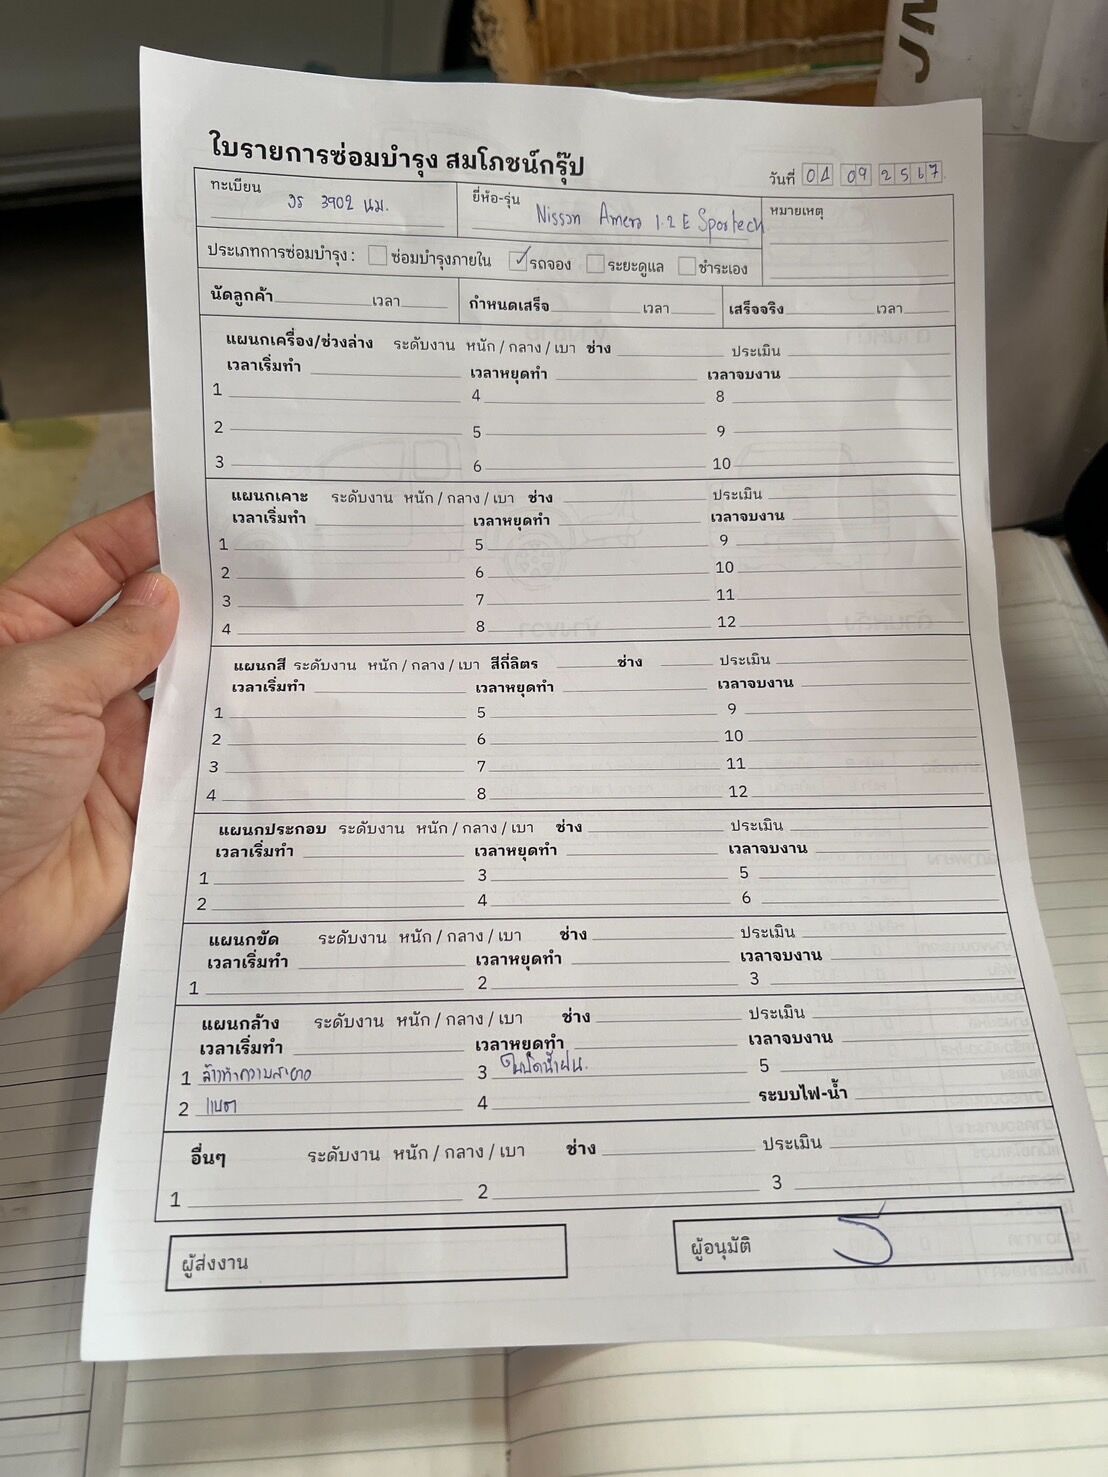 ใบรายการซ่อมบำรุง สมโภชน์กรุ๊ป
วันที่ 04 09 2567
ทะเบียน 3902 นม.
ยี่ห้อ-รุ่น Nissan Amera 1.2 E Sportech
หมายเหตุ
ประเภทการซ่อมบำรุง : ซ่อมบำรุงภายใน ✓ รถจอง ระยะดูแล ชำระเอง
นัดลูกค้า เวลา กำหนดเสร็จ เวลา เสร็จจริง เวลา
แผนกเครื่อง/ช่วงล่าง ระดับงาน หนัก / กลาง / เบา ช่าง ประเมิน
เวลาเริ่มทำ เวลาหยุดทำ เวลาจบงาน
1 4 8
2 5 9
3 6 10
แผนกเคาะ ระดับงาน หนัก / กลาง / เบา ช่าง ประเมิน
เวลาเริ่มทำ เวลาหยุดทำ เวลาจบงาน
1 5 9
2 6 10
3 7 11
4 8 12
แผนกสี ระดับงาน หนัก / กลาง / เบา สีกี่ลิตร ช่าง ประเมิน
เวลาเริ่มทำ เวลาหยุดทำ เวลาจบงาน
1 5 9
2 6 10
3 7 11
4 8 12
แผนกประกอบ ระดับงาน หนัก / กลาง / เบา ช่าง ประเมิน
เวลาเริ่มทำ เวลาหยุดทำ เวลาจบงาน
1 3 5
2 4 6
แผนกขัด ระดับงาน หนัก / กลาง / เบา ช่าง ประเมิน
เวลาเริ่มทำ เวลาหยุดทำ เวลาจบงาน
1 2 3
แผนกล้าง ระดับงาน หนัก / กลาง / เบา ช่าง ประเมิน
เวลาเริ่มทำ เวลาหยุดทำ เวลาจบงาน
1 ล้างทำความสะอาด 3 ใบปัดน้ำฝน. 5
2 4 ระบบไฟ-น้ำ
อื่นๆ ระดับงาน หนัก / กลาง / เบา ช่าง ประเมิน
1 2 3
ผู้ส่งงาน
ผู้อนุมัติ